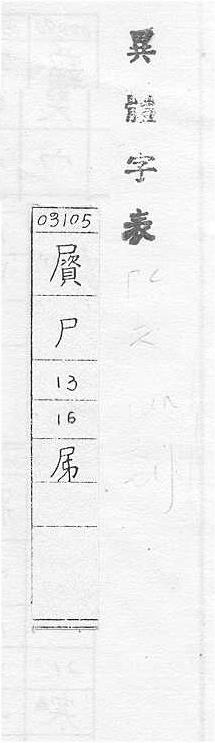 異體字表
03105
屭
尸
13
16
屌